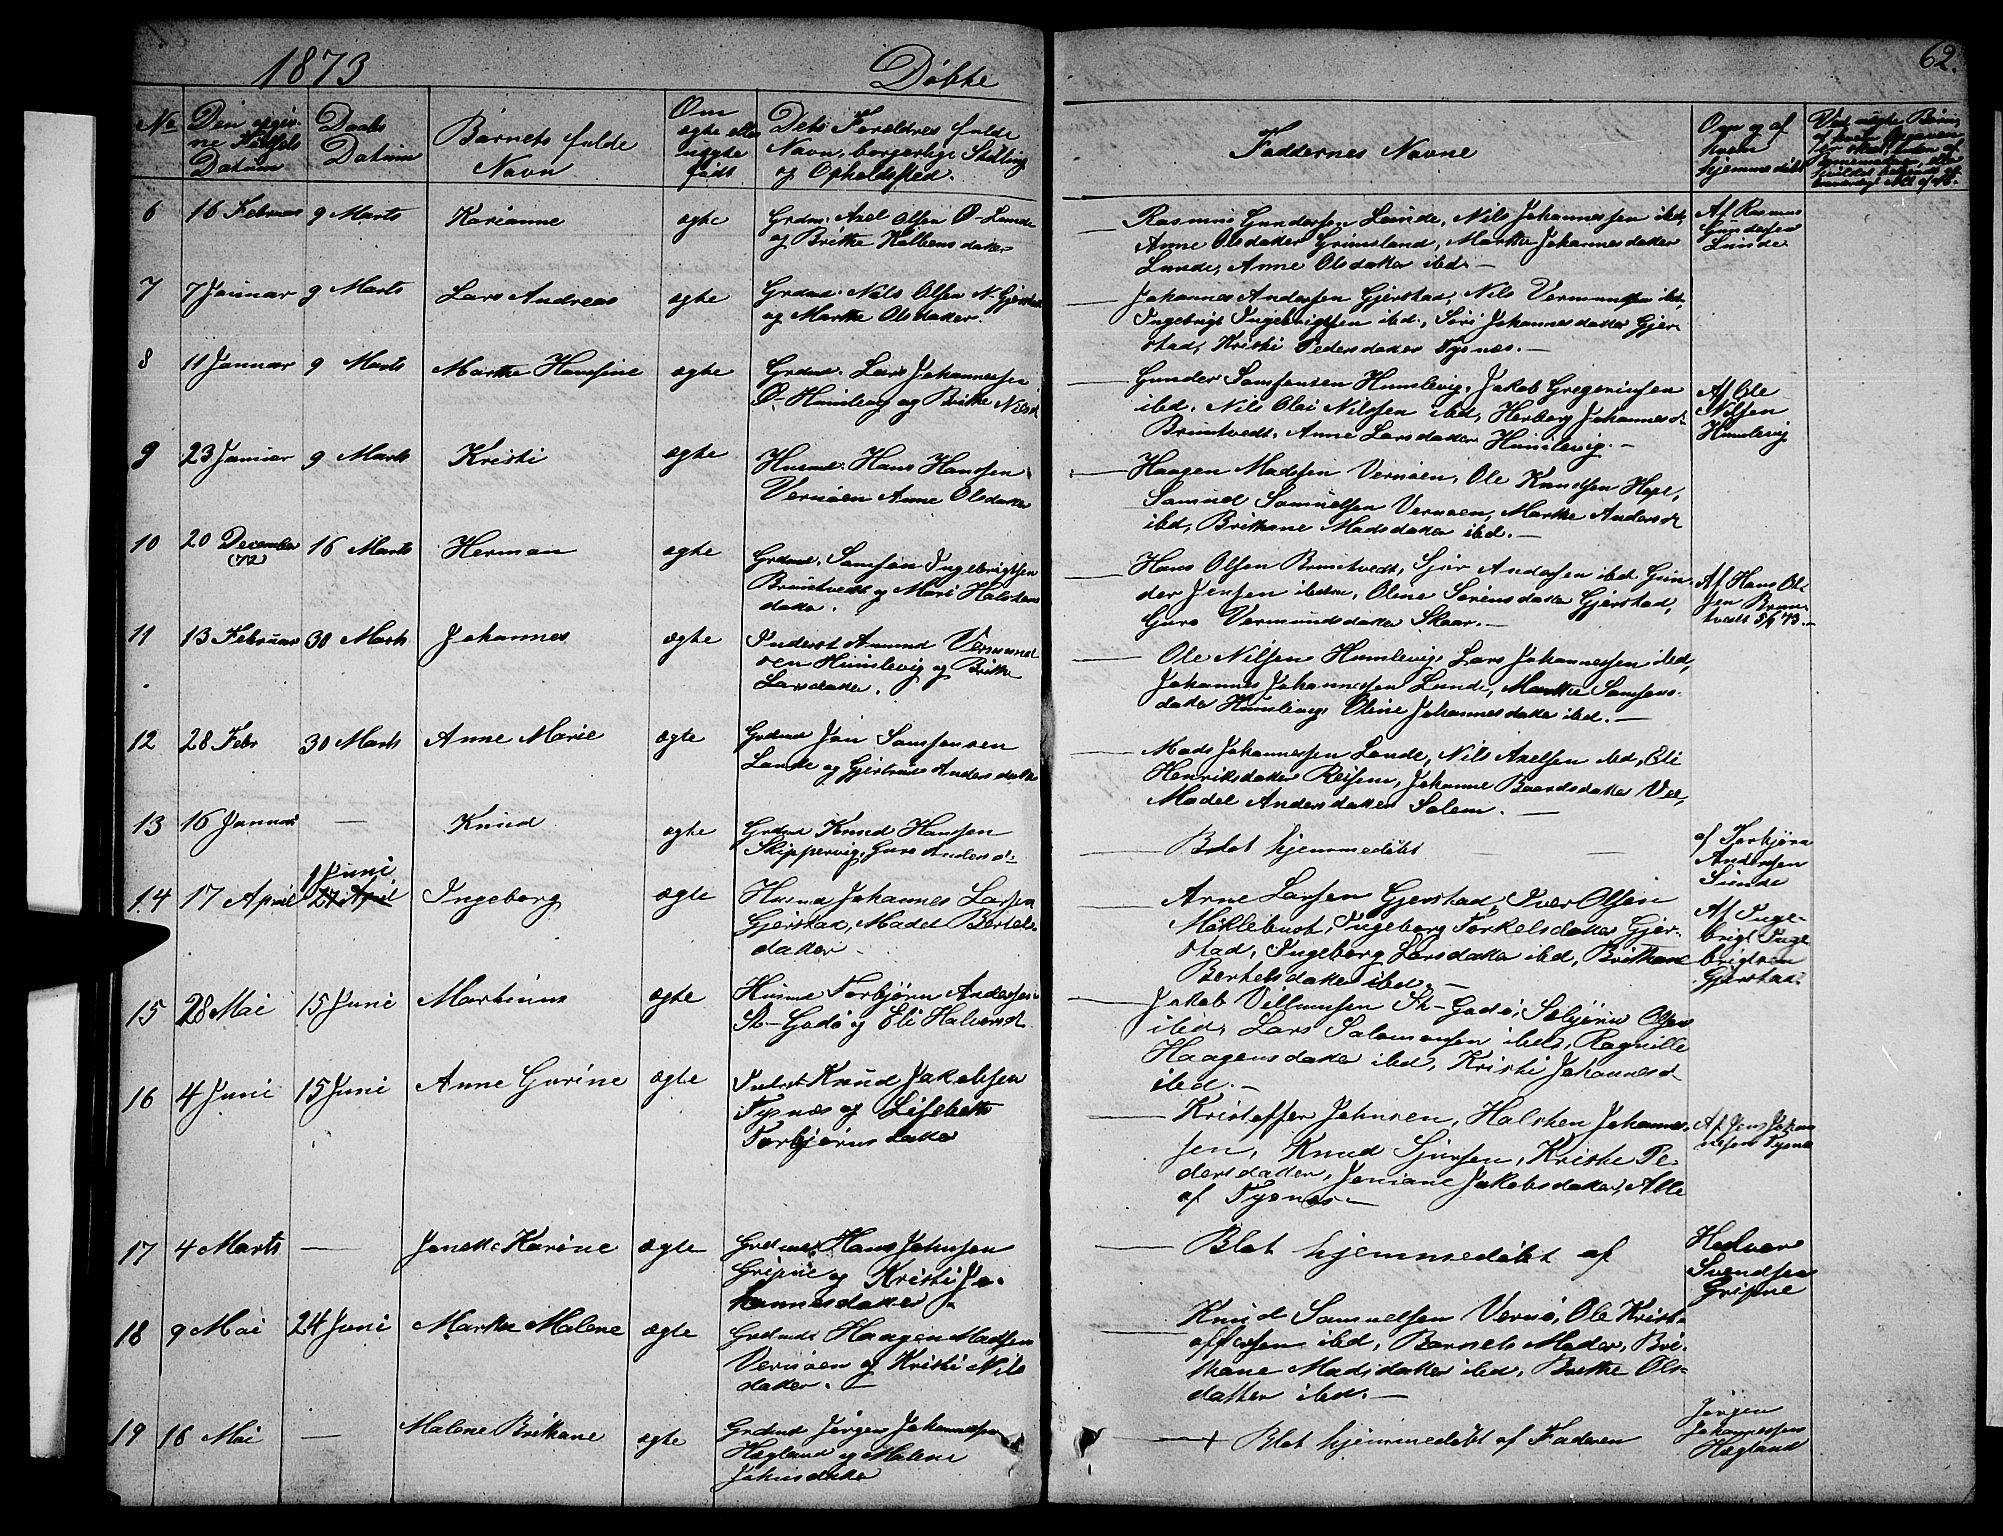 1873
Døbte
62.
No
Den opgiv-
ne Fødsels
Datum
Daabs
Datum
Barnets fulde
Navn
Om
ægte eller
uægte
født
Dets Foreldres fulde
Navn, borgerlige Stilling
og Opholdsted.
Faddernes Navne
Om og af
hvem
hjemmedøbt
6 16 Februar 9 Marts Karianne ægte
Grdm: Axel Olsen Ø-Lunde
og Brithe Kolbensdatter
Rasmus Gundersen Lunde, Nils Johannessen ibd,
Anne Olsdatter Grimsland, Marthe Johannesdatter
Lunde, Anne Olsdatter ibd.—
Af Rasmus
Gundersen
Lunde
7 7 Januar 9 Marts Lars Andreas ægte
Grdmd: Nils Olsen N-Gjerstad
og Marthe Olsdatter.
Johannes Andersen Gjerstad, Nils Vermundsen ibd,
Ingebrigt Ingebrigtsen ibd, Siri Johannesdatter Gjer-
stad, Kristi Pedersdatter Tysnes.—
8 11 Januar 9 Marts Marthe Hansine ægte
Grdmd: Lars Johannessen
Ø-Humlevig og Brithe Nilsd
Gunder Samsonsen Humlevig, Jakob Gregoriussen
ibd, Nils Olai Nilssen ibd, Herborg Johannesd-
Bruntvedt, Anne Larsdatter Humlevig.—
Af Ole
Nilsen
Humlevig
9 23 Januar 9 Marts Kristi ægte
Husmd: Hans Hanssen
Vernøen Anne Olsdatter
Haagen Madssen Vernøen, Ole Knudsen Hope,
Samuel Samuelsen Vernøen, Marthe Andersd
ibd, Brithane Madsdatter ibd.—
10 20 December (72) 16 Marts Herman ægte
Grdmd: Samson Ingebrigtsen
Bruntvedt og Mari Halstens
datter.
Hans Olsen Bruntvedt, Sjur Andersen ibd, Gun-
der Jensen ibdm, Oline Sørensdatter Gjerstad,
Guro Vermundsdatter Skaar.—
Af Hans Ol-
sen Brun-
tvedt 5/1 73.—
11 13 Februar 30 Marts Johannes ægte
Inderst Amund Vermund
sen Humlevig og Brithe
Larsdatter.
Ole Nilsen Humlevig, Lars Johannessen ibd,
Johannes Johannessen Lunde, Marthe Samsons-
datter Humlevig, Oline Johannesdatter ibd.—
12 28 Febr 30 Marts Anne Marie ægte
Grdmd Jon Samsonsen
Lande og Gjertrud Andersdatter
Mads Johannessen Lande, Nils Axelsen ibd, Eli
Henriksdatter Reisem, Johanne Baardsdatter Vee,
Madel Andersdatter Solem.—
13 16 Januar — Knud ægte
Grdmd Knud Hanssen
Skippervig, Guro Andersd:
Blot hjemmedøbt
af Torbjørn
Andersen
Sunde
14 17 April 27 April 1 Juni Ingeborg ægte
Husmd Johannes Larsen
Gjerstad, Madel Bertels-
datter
Arne Larsen Gjerstad, Iver Olsen
Møklebust, Ingeborg Torkelsdatter Gjer-
stad, Ingeborg Larsdatter ibd, Brithane
Bertelsdatter ibd.—
Af Inge-
brigt Inge
brigtsen
Gjerstad:
15 28 Mai 15 Juni Marthinus ægte
Husmd Torbjørn Andersen
St-Godø og Eli Halvorsd
Jakob Villumsen St-Godø, Sebjørn Olsen
ibd, Lars Salomonsen ibd, Ragnille
Haagensdatter ibd, Kristi Johannesd
ibd.—
16 4 Juni 15 Juni Anne Gurine ægte
Inderst Knud Jakobsen
Tysnes og Lisebeth
Torbjørnsdatter
Kristoffer Johnsen, Halsten Johannes-
sen, Knud Sjursen, Kristie Pe-
dersdatter, Joniane Jakobsdatter, Alle
af Tysnes—
Af Jens Johan
nesen Tysnes
17 4 Marts — Jonette Karine ægte
Grdmd Hans Johnsen
Gripne og Kristi Jo-
hannesdatter
Blot hjemmedøbt af
Halvor
Svendsen
Gripne
18 9 Mai 24 Juni Marthe Malene ægte
Grdmd: Haagen Madsen
Vernøen og Kristi Nils
datter.—
Knud Samuelsen Vernø, Ole Krist-
offersen ibd, Barnets Moder, Bri-
thane Madsdatter ibd, Brithe Ols-
datter ibd.—
19 16 Mai — Malene Brithane ægte
Grdmd Jørgen Johannessen
Høgland og Malene
Johnsdatter
Blot hjemmedøbt af Faderen
Jørgen
Johannessen
Høgland